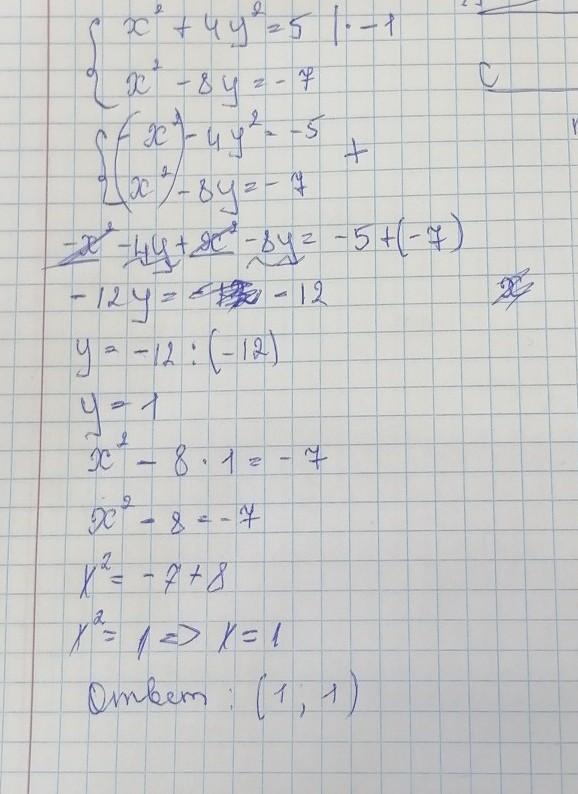 x² + 4y² = 5 | · -1
x² - 8y = -7
- x² - 4y² = -5 +
x² - 8y = -7
-x² - 4y + x² - 8y = -5 + (-7)
-12y = -12
y = -12 : (-12)
y = 1
x² - 8 · 1 = -7
x² - 8 = -7
x² = -7 + 8
x² = 1 => x = 1
Ответ : (1 ; 1)
C